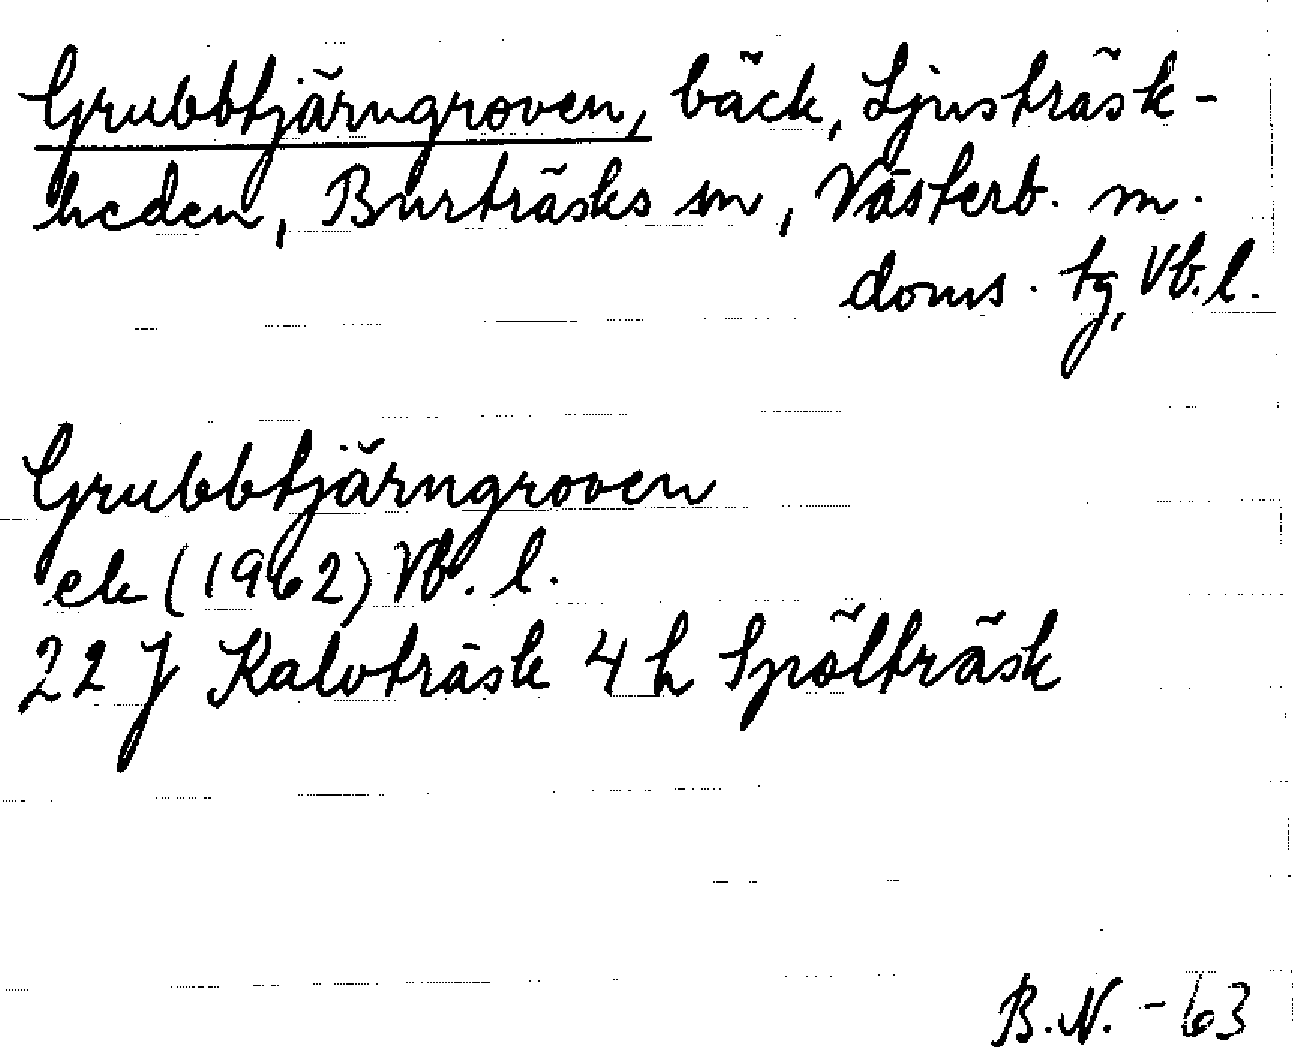 Grubbtjärngroven, bäck, Ljusträsk-
heden, Burträsks sn, Västerb. m.
doms. tg, Vb. l.
Grubbtjärngroven
ek (1962) Vb. l.
22 J Kalvträsk 4 h Spölträsk
B.N. - 63